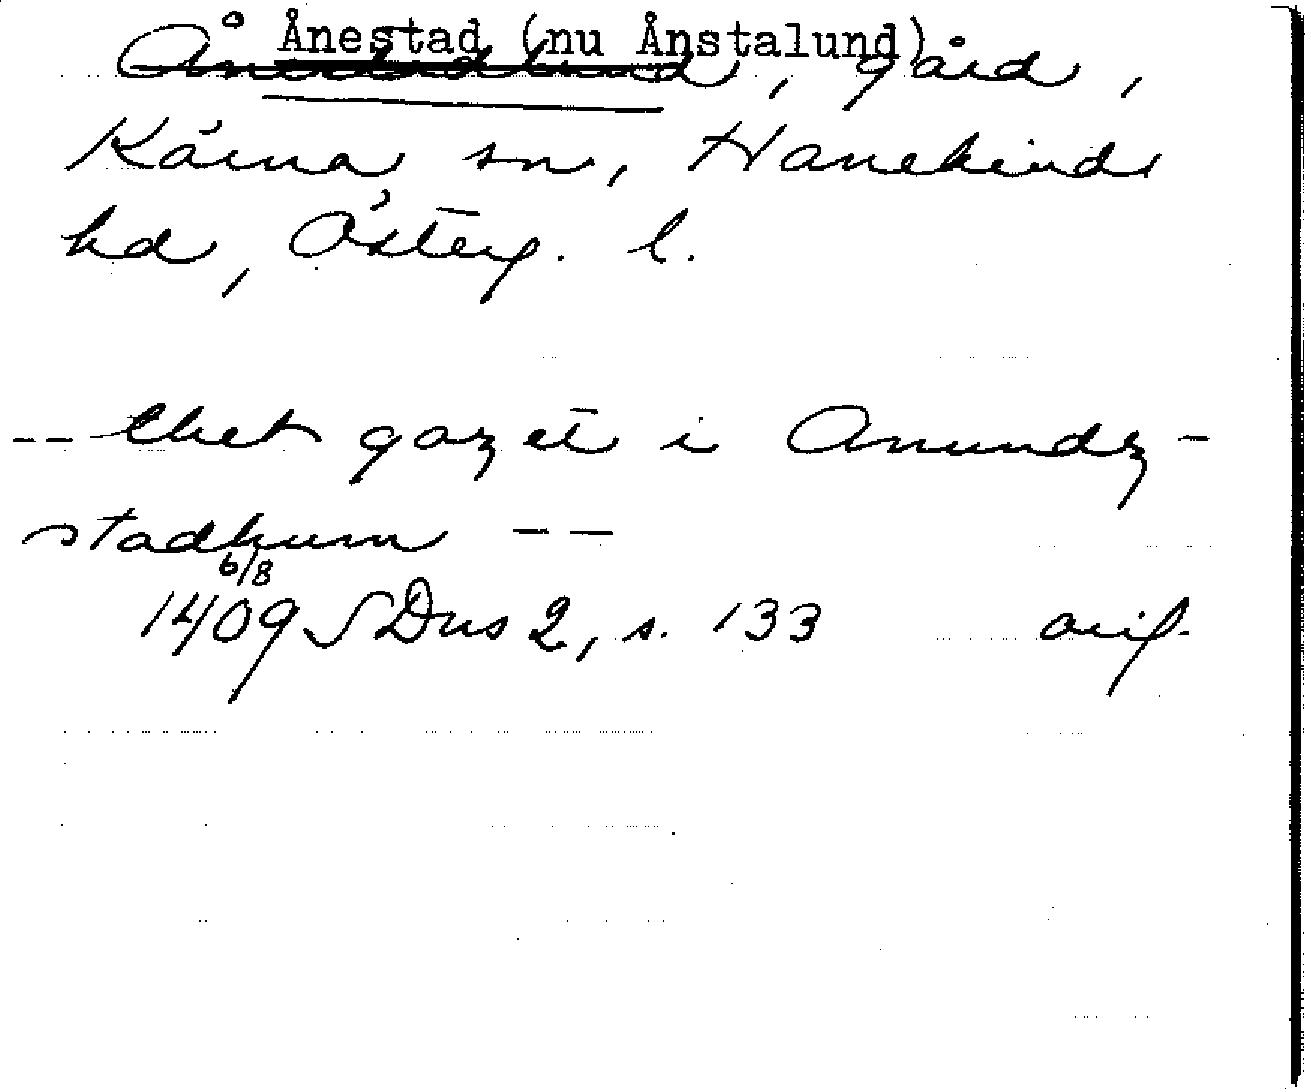 Ånestad (nu Ånstalund)
, gård,
Kärna sn, Hanekinds
hd, Österg. l.
-- thet gozet i Anundz-
stadhum --
6/8
1409 SDns 2, s. 133 orig.